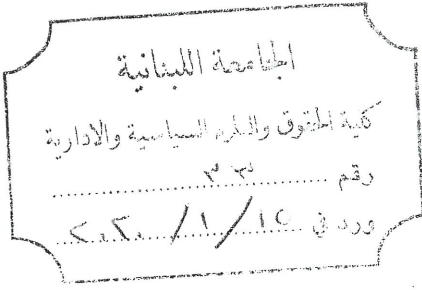 الجامعة اللبنانية
كلية الحقوق والعلوم السياسية والادارية
رقم
ورد في ١٥/١/٢٠٢٠